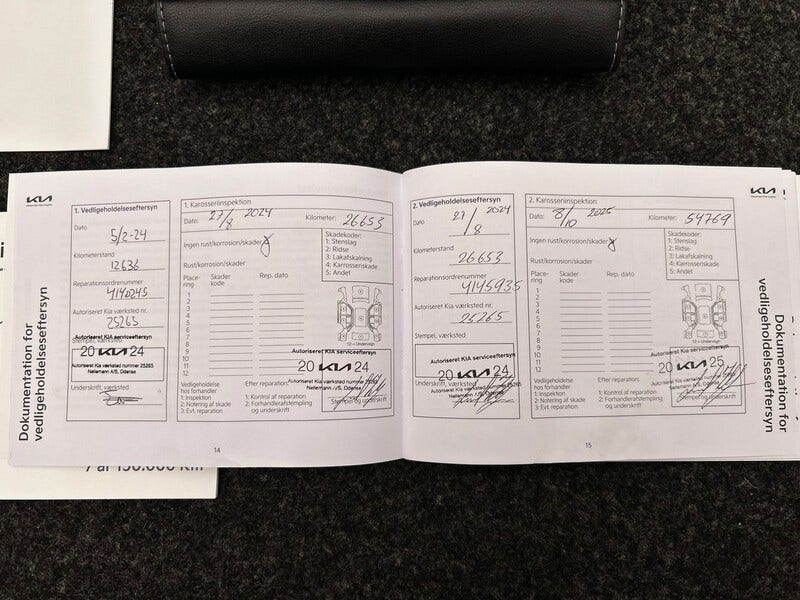 KIA
1. Vedligeholdelseseftersyn
Dato
5/2-24
Kilometerstand
12636
Reparationsordrenummer
4140245
Autoriseret Kia værksted nr.
25265
Stempel, værksted
Autoriseret KIA serviceeftersyn
20 KIA 24
Autoriseret Kia værksted nummer 25265
Nellemann A/S, Odense
Underskrift, værksted
Dokumentation for
vedligeholdelseseftersyn
1. Karosseriinspektion
Dato: 27/8 2024 Kilometer: 26653
Ingen rust/korrosion/skader
Rust/korrosion/skader:
Skadekoder:
1: Stenslag
2: Ridse
3: Lakafskalning
4: Karrosseriskade
5: Andet
Place-
ring
Skader
kode
Rep. dato
1
2
3
4
5
6
7
8
9
10
11
12
12 = Undervogn
Autoriseret KIA serviceeftersyn
20 KIA 24
Autoriseret Kia værksted nummer 25265
Nellemann A/S, Odense
Vedligeholdelse
hos forhandler
1: Inspektion
2: Notering af skade
3: Evt. reparation
Efter reparation:
1: Kontrol af reparation
2: Forhandlerafstempling
og underskrift
Stempel og underskrift
14
2. Vedligeholdelseseftersyn
Dato
27/8 2024
Kilometerstand
26653
Reparationsordrenummer
4145935
Autoriseret Kia værksted nr.
25265
Stempel, værksted
Autoriseret KIA serviceeftersyn
20 KIA 24
Autoriseret Kia værksted nummer 25265
Nellemann A/S, Odense
Underskrift, værksted
2. Karosseriinspektion
Dato: 8/10 2025 Kilometer: 54769
Ingen rust/korrosion/skader
Rust/korrosion/skader:
Skadekoder:
1: Stenslag
2: Ridse
3: Lakafskalning
4: Karrosseriskade
5: Andet
Place-
ring
Skader
kode
Rep. dato
1
2
3
4
5
6
7
8
9
10
11
12
12 = Undervogn
Autoriseret KIA serviceeftersyn
20 KIA 25
Autoriseret Kia værksted nummer 25265
Nellemann A/S, Odense
Vedligeholdelse
hos forhandler
1: Inspektion
2: Notering af skade
3: Evt. reparation
Efter reparation:
1: Kontrol af reparation
2: Forhandlerafstempling
og underskrift
Stempel og underskrift
15
KIA
Dokumentation for
vedligeholdelseseftersyn
7 år 150.000 km